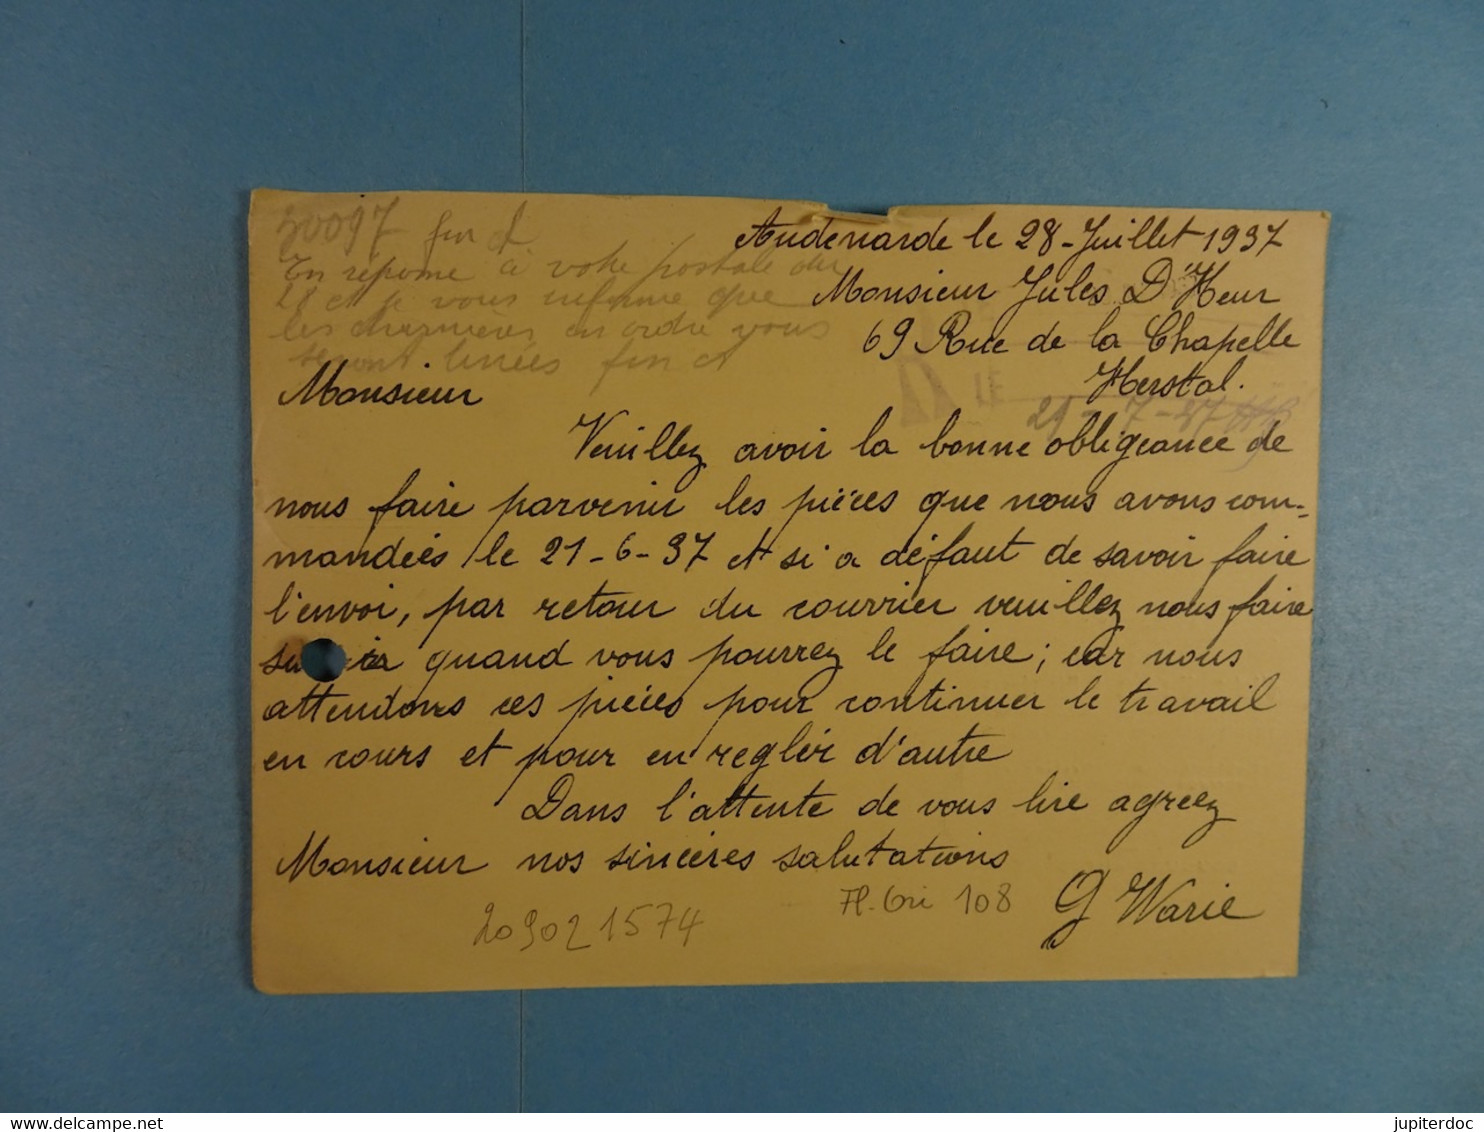 30097 fin
Audenarde le 28-Juillet 1937
En réponse à votre postale du
28 ct je vous informe que
les charnières en ordre vous
seront livrées fin ct
Monsieur Jules D'Heur
69 Rue de la Chapelle
Herstal.
LE
29-7-37
Monsieur
Veuillez avoir la bonne obligeance de
nous faire parvenir les pièces que nous avons com-
mandées le 21-6-37 et si a défaut de savoir faire
l'envoi, par retour du courrier veuillez nous faire
quand vous pourrez le faire; car nous
attendons ces pièces pour continuer le travail
en cours et pour en regler d'autre
Dans l'attente de vous lire agreez
Monsieur nos sincères salutations
G Warie
108
209021574
jupiterdoc